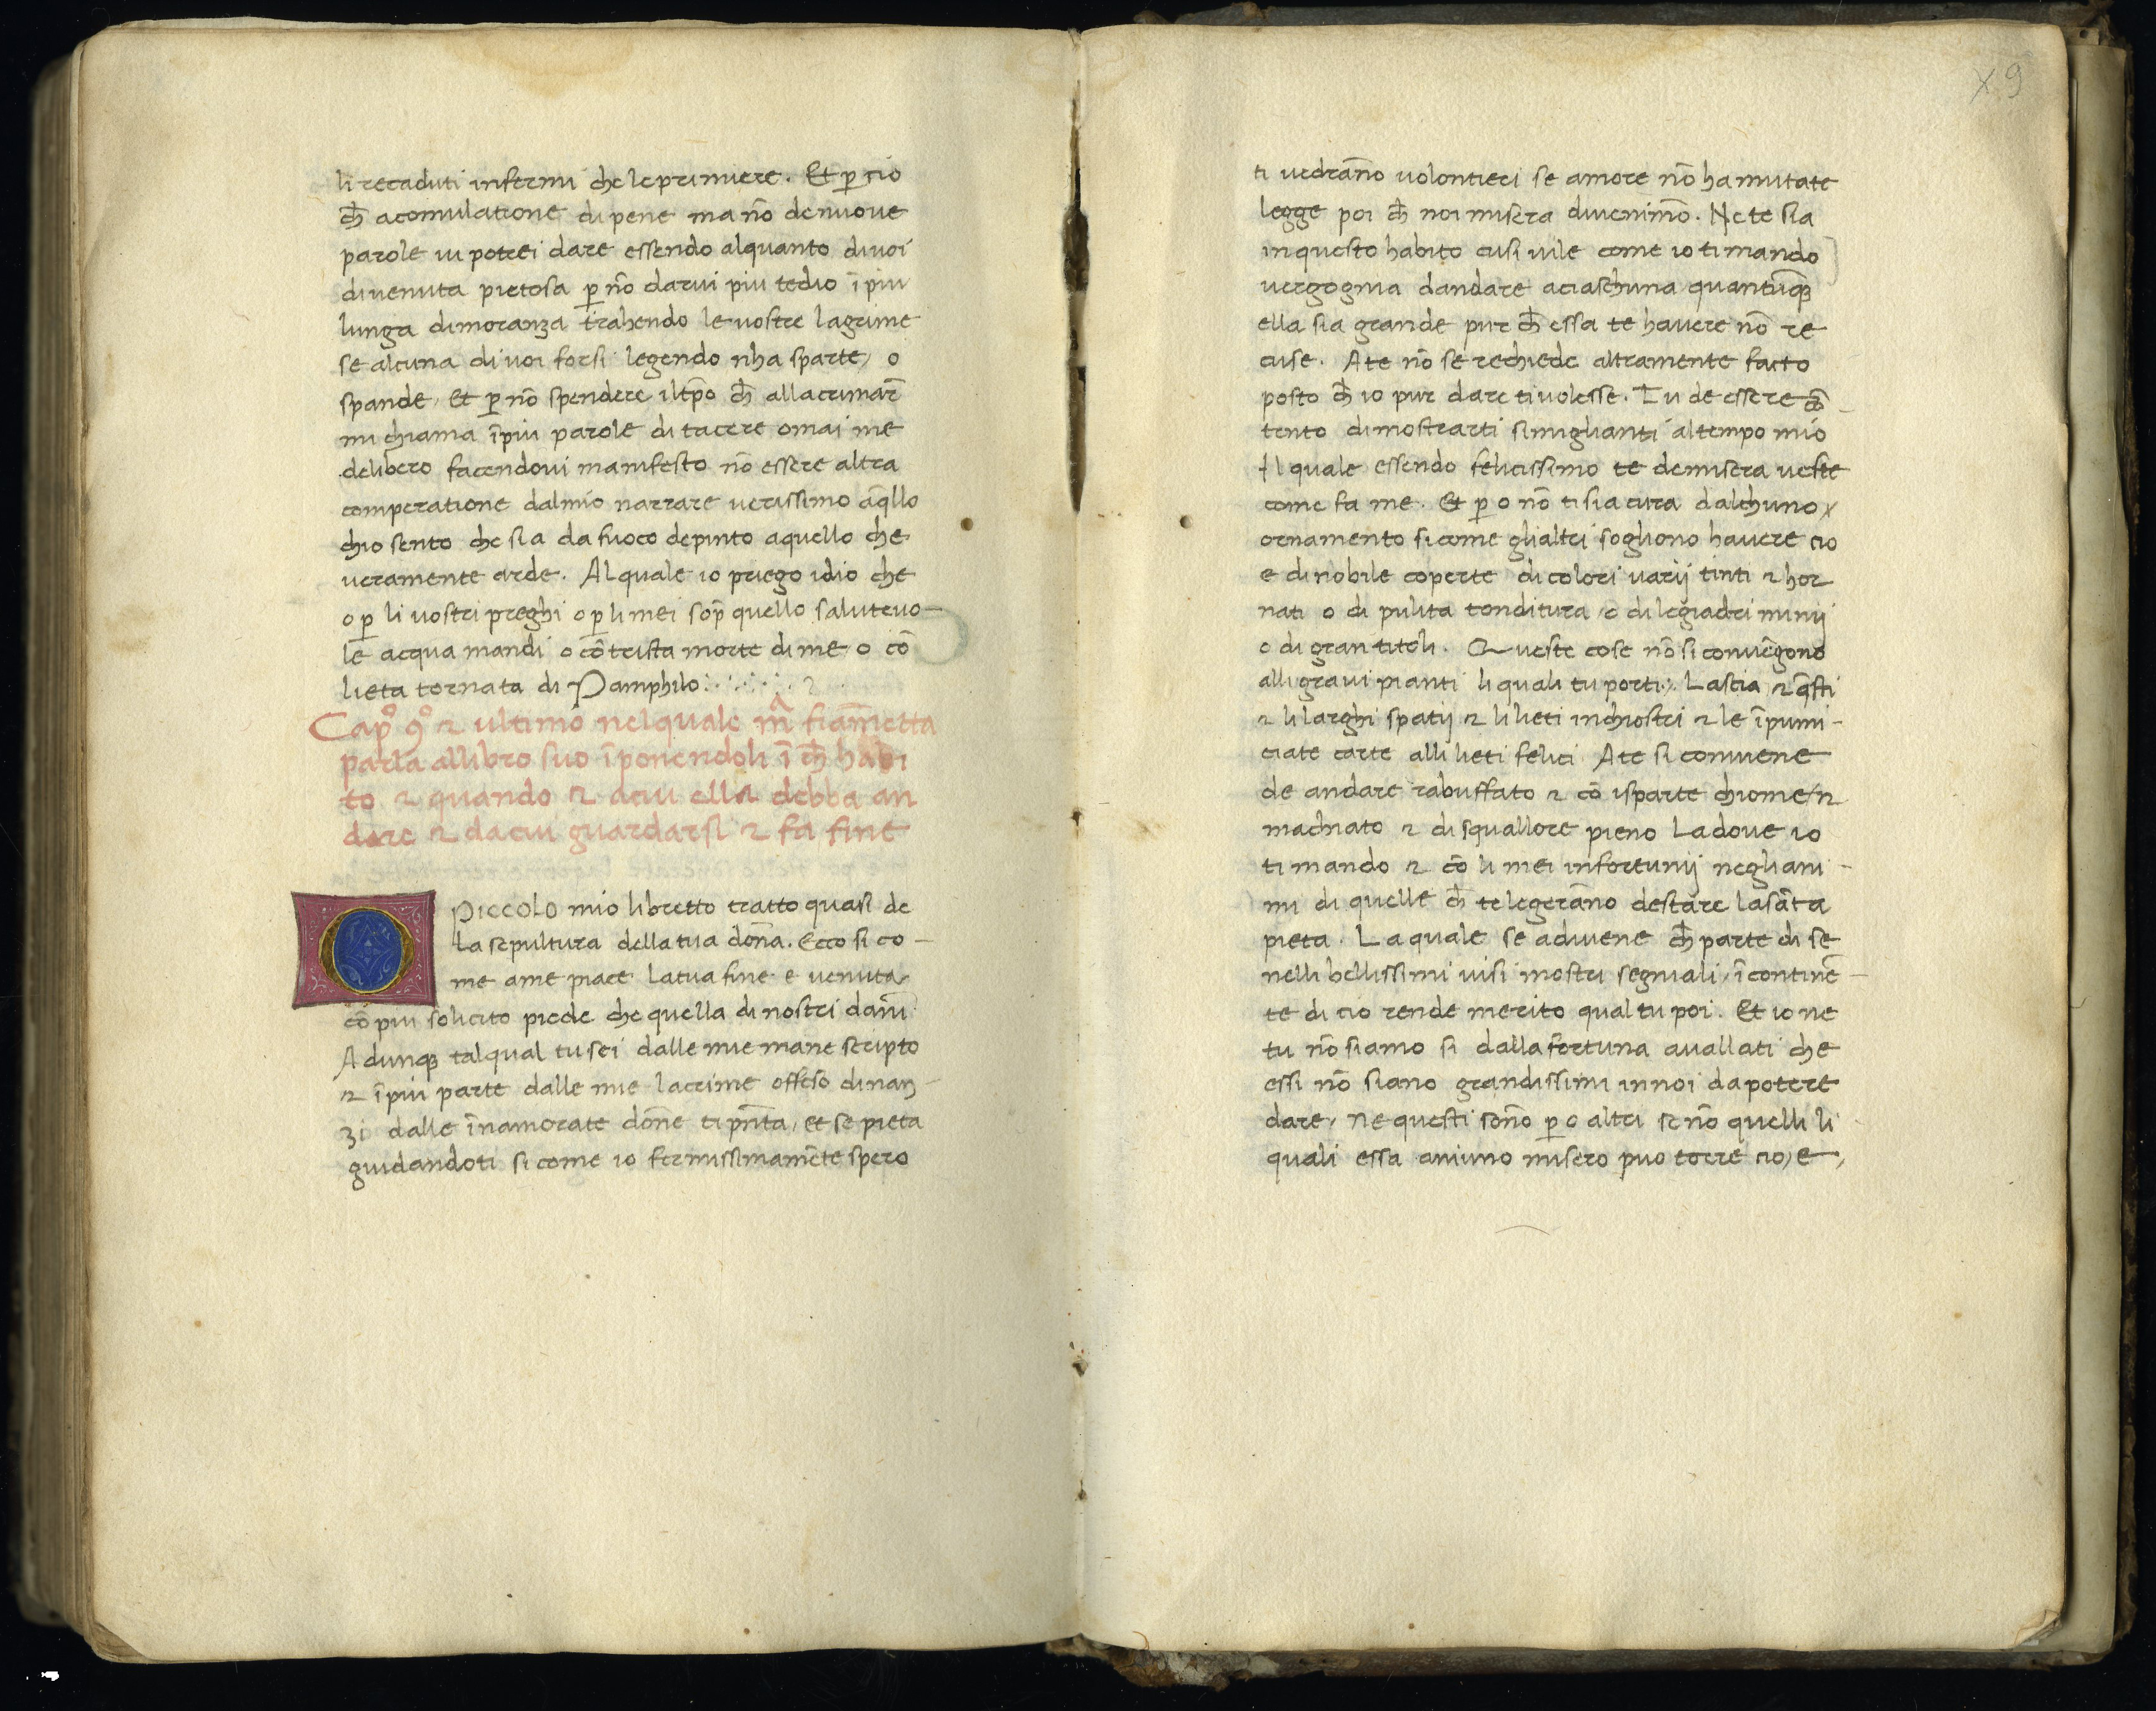 li recaduti infermi che le primiere. Et ꝑ cio
ch̄ acomulatione di pene ma nō de nuove
parole vi potrei dare essendo alquanto di voi
divenuta pietosa ꝑ nō darvi piu tedio ī piu
lunga dimoranza trahendo le vostre lagrime
se alcuna di voi forsi legendo nha sparte, o
spande, Et ꝑ nō spendere il tp̄o ch̄ allacrimar̄
mi chiama ī piu parole di tacere omai me
delibero facendovi manifesto nō essere altra
comperatione dal mio narrare verissimo a q̄llo
chio sento che sia da fuoco depinto a quello che
veramente arde. Al quale io priego idio che
o ꝑ li vostri preghi o ꝑ li mei sop̄ quello salutevo-
le acqua mandi o cō trista morte di me o cō
lieta tornata di Pamphilo
Cap⁰ 9⁰ ⁊ ultimo nel quale mᵃ̄ fiam̄etta
parla allibro suo īponendoli ī ch̄ habi
to ⁊ quando ⁊ a cui ella debba an
dare ⁊ da cui guardarsi ⁊ fa fine
O PICCOLO mio libretto tratto quasi de
la sepultura della tua don̄a. Ecco si co-
me a me piace la tua fine e venuta
cō piu solicito piede che quella di nostri dan̄i
Adunqꝫ tal qual tu sei dalle mie mane scripto
⁊ ī piu parte dalle mie lacrime offeso dinan-
zi dalle īnamorate don̄e ti pn̄ta, et se pieta
guidandoti si come io fermissimamēte spero
x9
ti vedran̄o volontieri se amore nō ha mutate
legge poi ch̄ noi misera divenim̄o. Ne te sia
in questo habito cusi vile come io ti mando
vergognia dandare a ciaschuna quantūqꝫ
ella sia grande pur ch̄ essa te havere nō re
cuse. A te nō se rechiede altramente facto
posto ch̄ io pur dare ti volesse. Tu de essere cō-
tento di mostrarti simiglianti al tempo mio
Il quale essendo felicissimo te de misera veste
come fa me. Et ꝑ o nō ti sia cura dalchuno
ornamento si come gli altri sogliono havere cio
e di nobile coperte di colori varij tinti ⁊ hor
nati o di pulita tonditura o di legiadri minij
o di gran titoli. Queste cose nō si convēgono
alli gravi pianti li quali tu porti. Lascia ⁊ q̄sti
⁊ li larghi spatij ⁊ li lieti inchiostri ⁊ le īpumi-
ciate carte alli lieti felici A te si conviene
de andare rabuffato ⁊ cō isparte chiome ⁊
machiato ⁊ di squallore pieno La dove io
ti mando ⁊ cō li mei infortunij negli ani-
mi di quelle ch̄ te legeran̄o destare la sāta
pieta. La quale se adivene ch̄ parte di se
nelli bellissimi visi mostri segniali, īcontinē-
te di cio rende merito qual tu poi. Et io ne
tu nō siamo si dalla fortuna avallati che
essi nō siano grandissimi in noi da potere
dare, Ne questi son̄o ꝑ o altri se nō quelli li
quali essa aniuno misero puo torre cio, e,